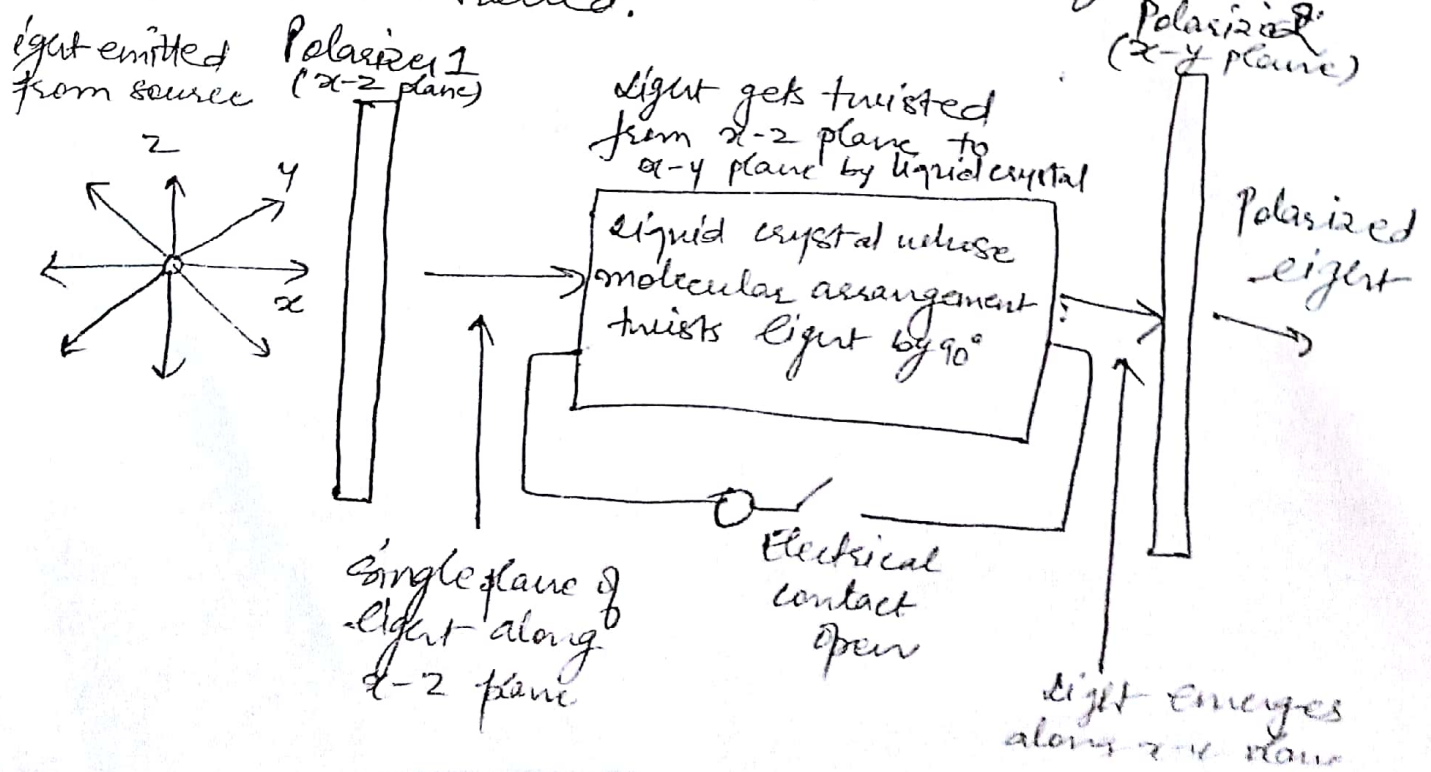 ight emitted
from source
Polarizer 1
(x-z plane)
Light gets twisted
from x-z plane to
x-y plane by liquid crystal
Polarizer 2
(x-y plane)
z
y
x
Liquid crystal whose
molecular arrangement
twists light by 90°
Polarized
light
Single plane of
light along
x-z plane
Electrical
contact
open
Light emerges
along x-y plane